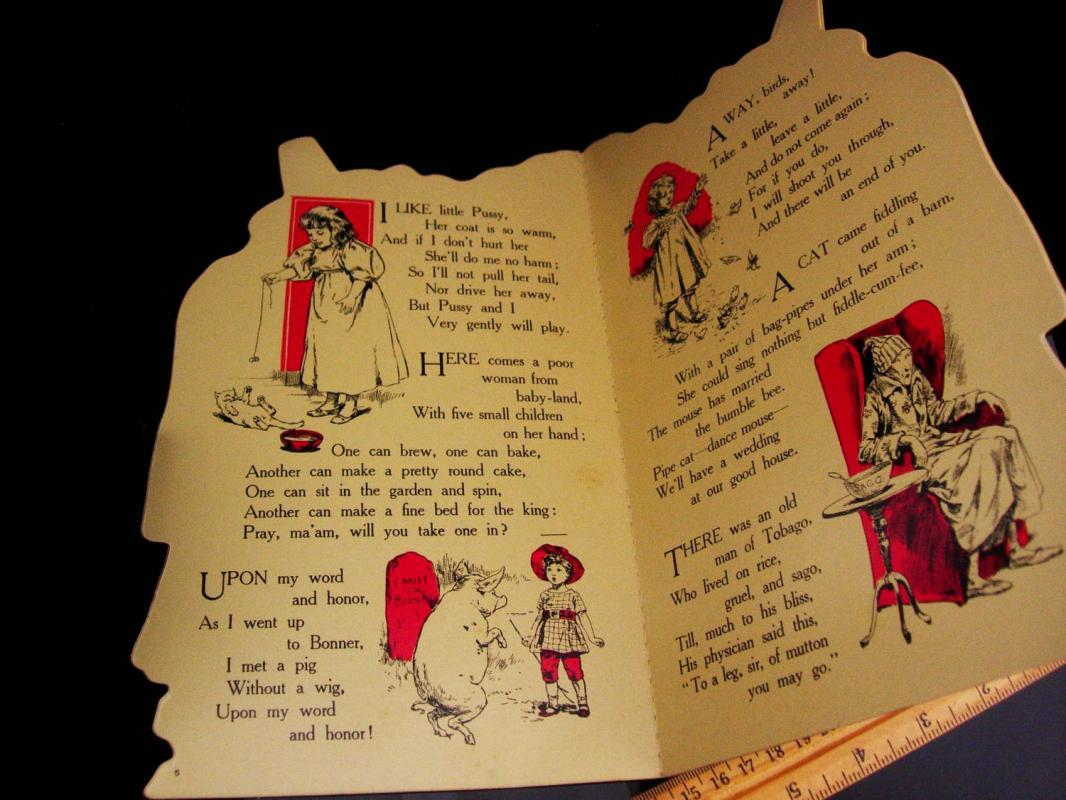 I LIKE little Pussy,
Her coat is so warm,
And if I don't hurt her
She'll do me no harm;
So I'll not pull her tail,
Nor drive her away,
But Pussy and I
Very gently will play.
HERE comes a poor
woman from
baby-land,
With five small children
on her hand;
One can brew, one can bake,
Another can make a pretty round cake,
One can sit in the garden and spin,
Another can make a fine bed for the king:
Pray, ma'am, will you take one in?
UPON my word
and honor,
As I went up
to Bonner,
I met a pig
Without a wig,
Upon my word
and honor!
1 MILE
TO
BONNER
5
AWAY, birds,
away!
Take a little,
leave a little,
And do not come again;
For if you do,
I will shoot you through,
And there will be
an end of you.
A CAT came fiddling
out of a barn,
With a pair of bag-pipes under her arm;
She could sing nothing but fiddle-cum-fee,
The mouse has married
the bumble bee.
Pipe cat—dance mouse—
We'll have a wedding
at our good house.
THERE was an old
man of Tobago,
Who lived on rice,
gruel, and sago,
Till, much to his bliss,
His physician said this,
"To a leg, sir, of mutton
you may go."
SAGO
2
3
4
5
15 16 17 18 19